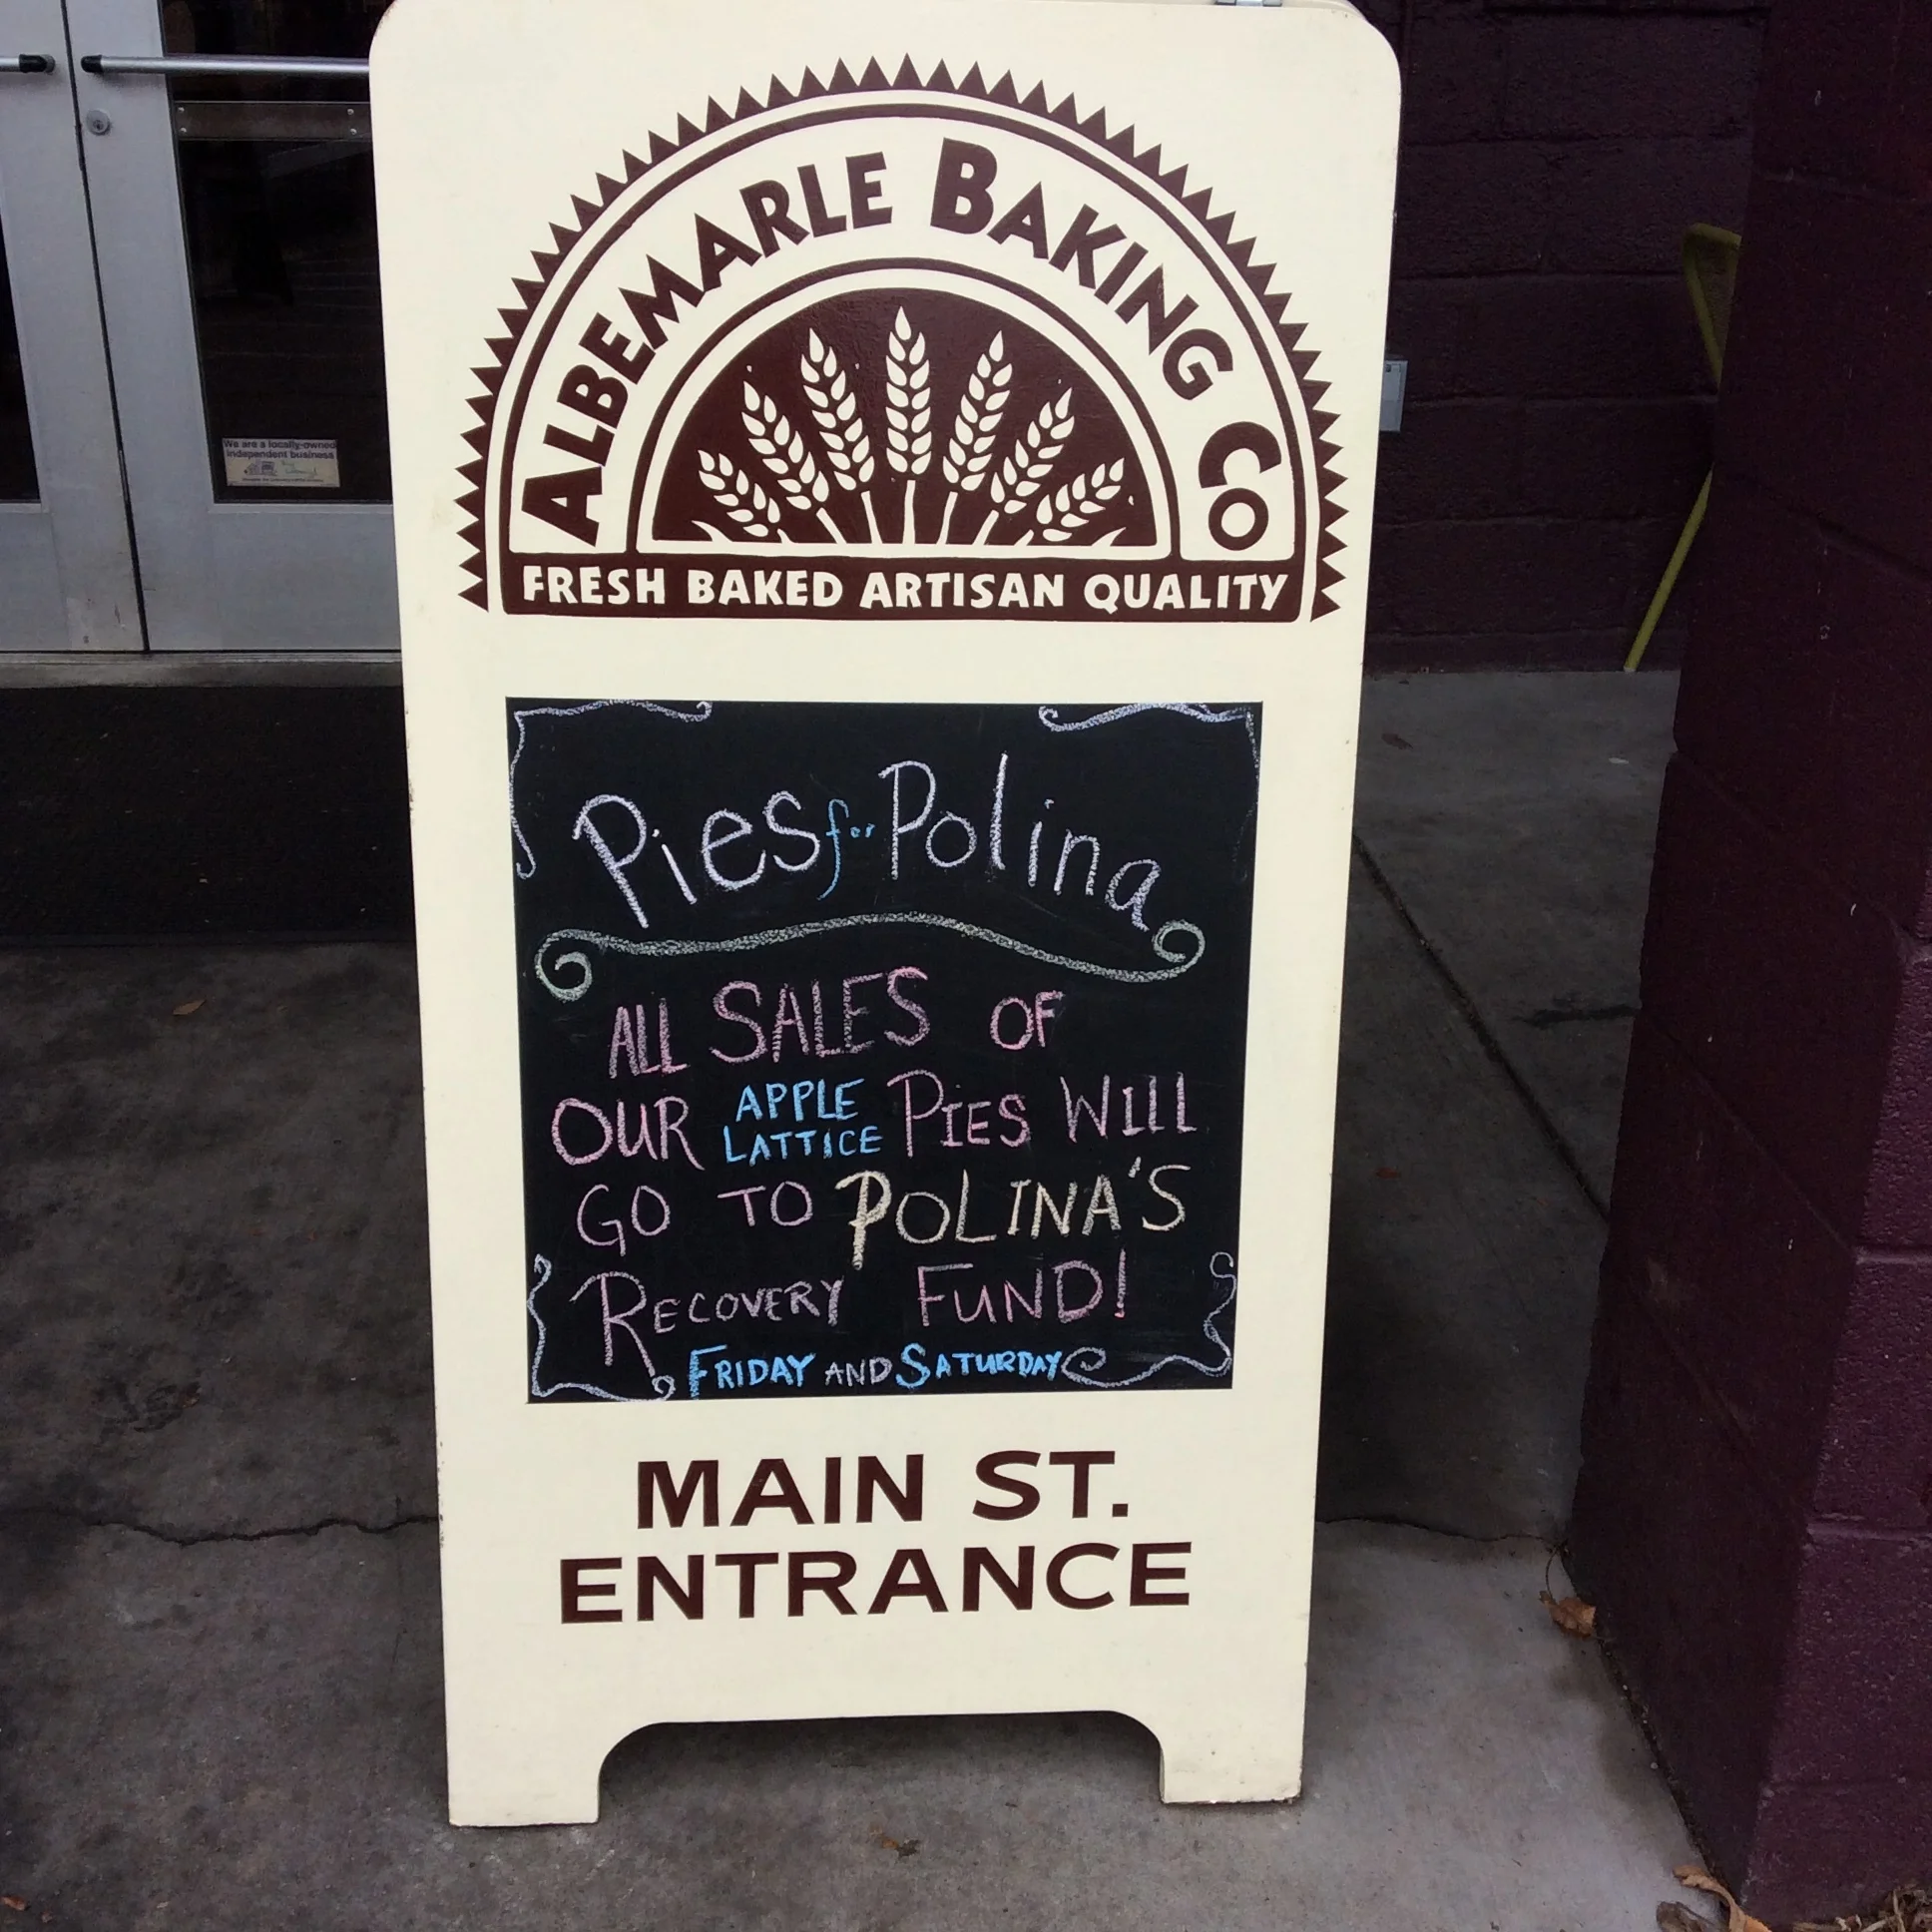 ALBEMARLE BAKING CO
FRESH BAKED ARTISAN QUALITY
We are a locally-owned
independent business
Pies for Polina
ALL SALES OF
OUR APPLE LATTICE PIES WILL
GO TO POLINA'S
RECOVERY FUND!
FRIDAY AND SATURDAY
MAIN ST.
ENTRANCE